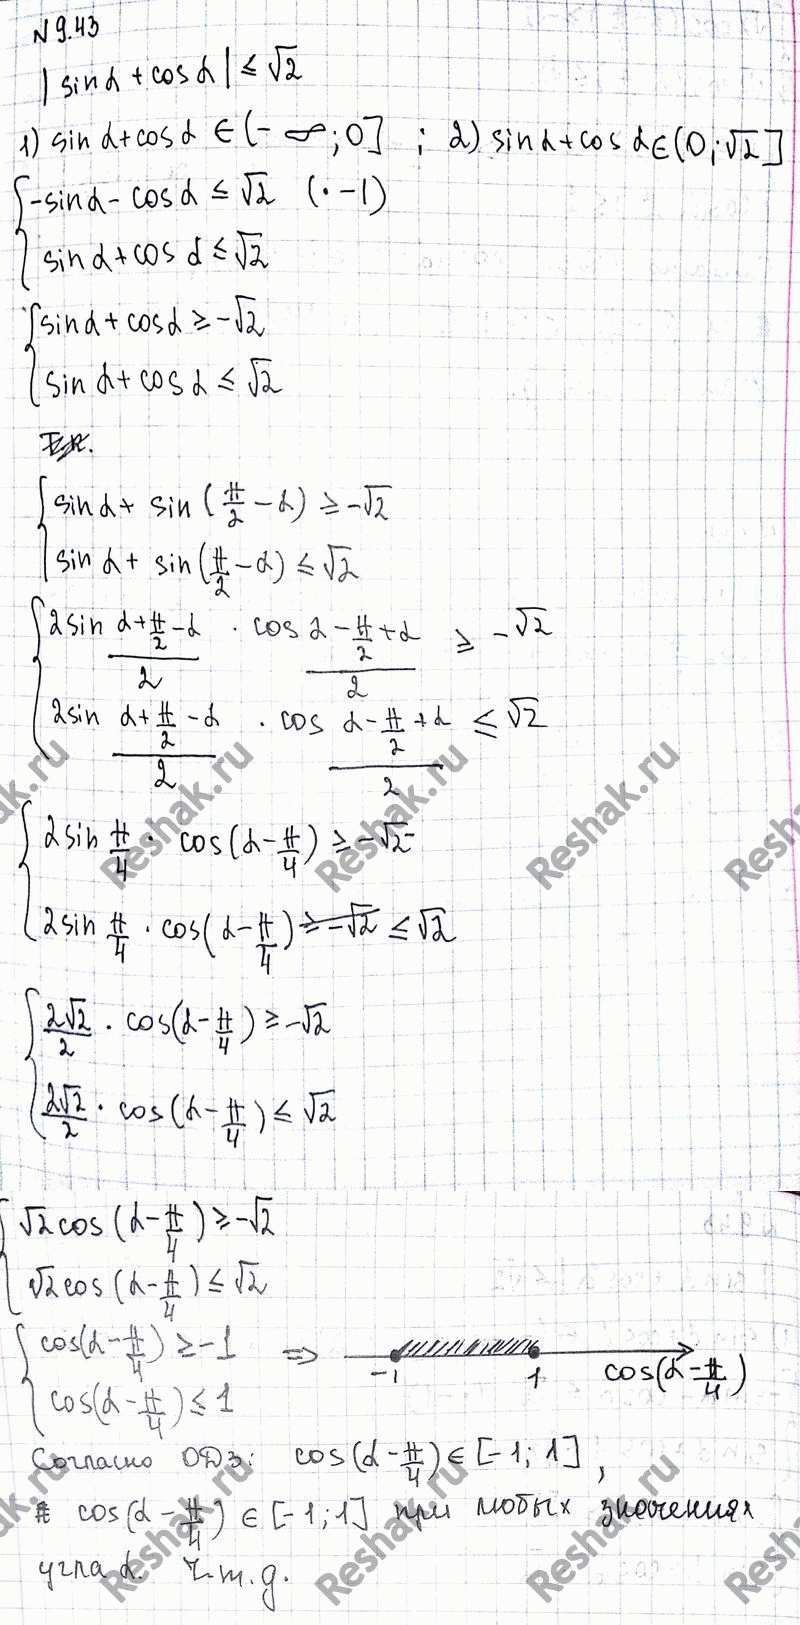 N 9.43
|sin α + cos α| ≤ √2
1) sin α + cos α ∈ (-∞; 0] ; 2) sin α + cos α ∈ (0; √2]
{ -sin α - cos α ≤ √2 (· -1)
sin α + cos α ≤ √2
{ sin α + cos α ≥ -√2
sin α + cos α ≤ √2
{ sin α + sin (π/2 - α) ≥ -√2
sin α + sin (π/2 - α) ≤ √2
{ 2 sin (α + π/2 - α)/2 · cos (α - π/2 + α)/2 ≥ -√2
2 sin (α + π/2 - α)/2 · cos (α - π/2 + α)/2 ≤ √2
{ 2 sin π/4 · cos (α - π/4) ≥ -√2
2 sin π/4 · cos (α - π/4) ≥ -√2 ≤ √2
{ 2√2/2 · cos (α - π/4) ≥ -√2
2√2/2 · cos (α - π/4) ≤ √2
{ √2 cos (α - π/4) ≥ -√2
√2 cos (α - π/4) ≤ √2
{ cos (α - π/4) ≥ -1 ⇒ -1 1 cos (α - π/4)
cos (α - π/4) ≤ 1
Согласно ОДЗ: cos (α - π/4) ∈ [-1; 1],
cos (α - π/4) ∈ [-1; 1] при любых значениях
угла α. Ч.т.д.
Reshak.ru
Reshak.ru
Reshak.ru
Reshak.ru
Reshak.ru
Reshak.ru